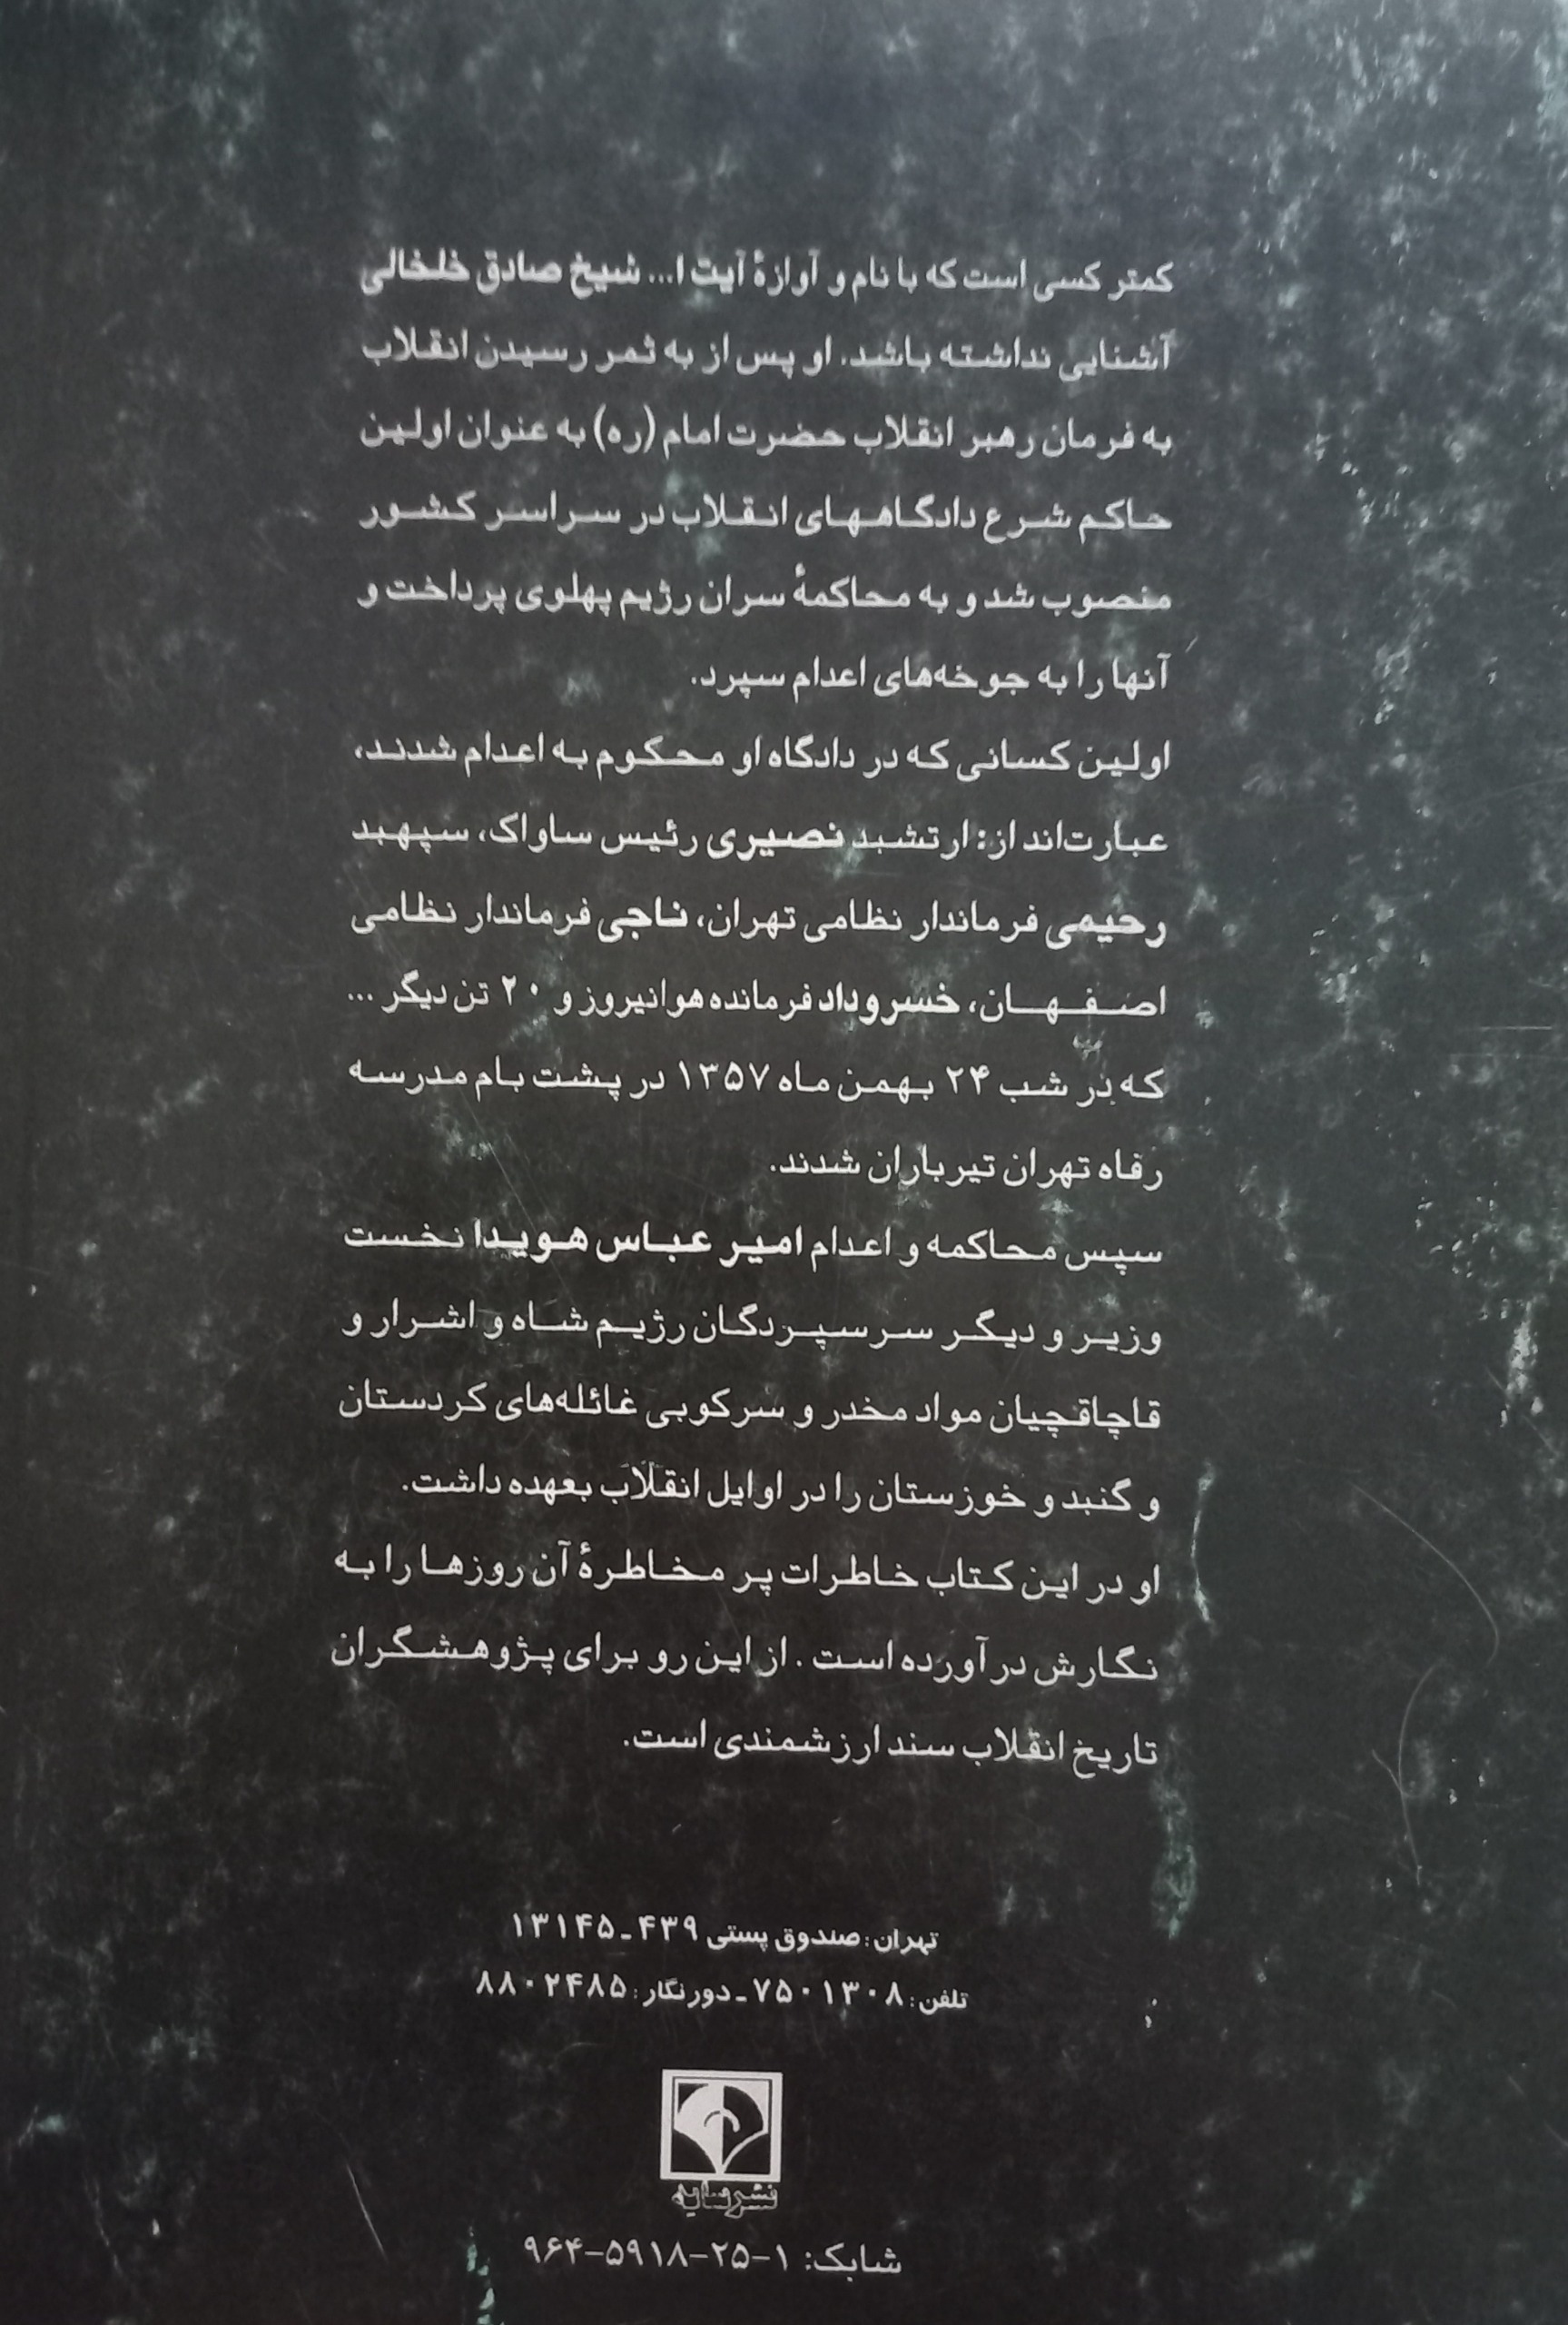 کمتر کسی است که با نام و آوازهٔ آیت ا... شیخ صادق خلخالی
آشنایی نداشته باشد. او پس از به ثمر رسیدن انقلاب
به فرمان رهبر انقلاب حضرت امام (ره) به عنوان اولین
حاکم شرع دادگاههای انقلاب در سراسر کشور
منصوب شد و به محاکمهٔ سران رژیم پهلوی پرداخت و
آنها را به جوخه‌های اعدام سپرد.
اولین کسانی که در دادگاه او محکوم به اعدام شدند،
عبارت‌اند از: ارتشبد نصیری رئیس ساواک، سپهبد
رحیمی فرماندار نظامی تهران، ناجی فرماندار نظامی
اصفهان، خسروداد فرمانده هوانیروز و ۲۰ تن دیگر ...
که در شب ۲۴ بهمن ماه ۱۳۵۷ در پشت بام مدرسه
رفاه تهران تیرباران شدند.
سپس محاکمه و اعدام امیر عباس هویدا نخست
وزیر و دیگر سرسپردگان رژیم شاه و اشرار و
قاچاقچیان مواد مخدر و سرکوبی غائله‌های کردستان
و گنبد و خوزستان را در اوایل انقلاب بعهده داشت.
او در این کتاب خاطرات پر مخاطرهٔ آن روزها را به
نگارش درآورده است . از این رو برای پژوهشگران
تاریخ انقلاب سند ارزشمندی است.
تهران: صندوق پستی ۴۳۹ـ۱۳۱۴۵
تلفن: ۷۵۰۱۳۰۸ ـ دورنگار: ۸۸۰۲۴۸۵
نشر سایه
شابک: ۱-۲۵-۵۹۱۸-۹۶۴